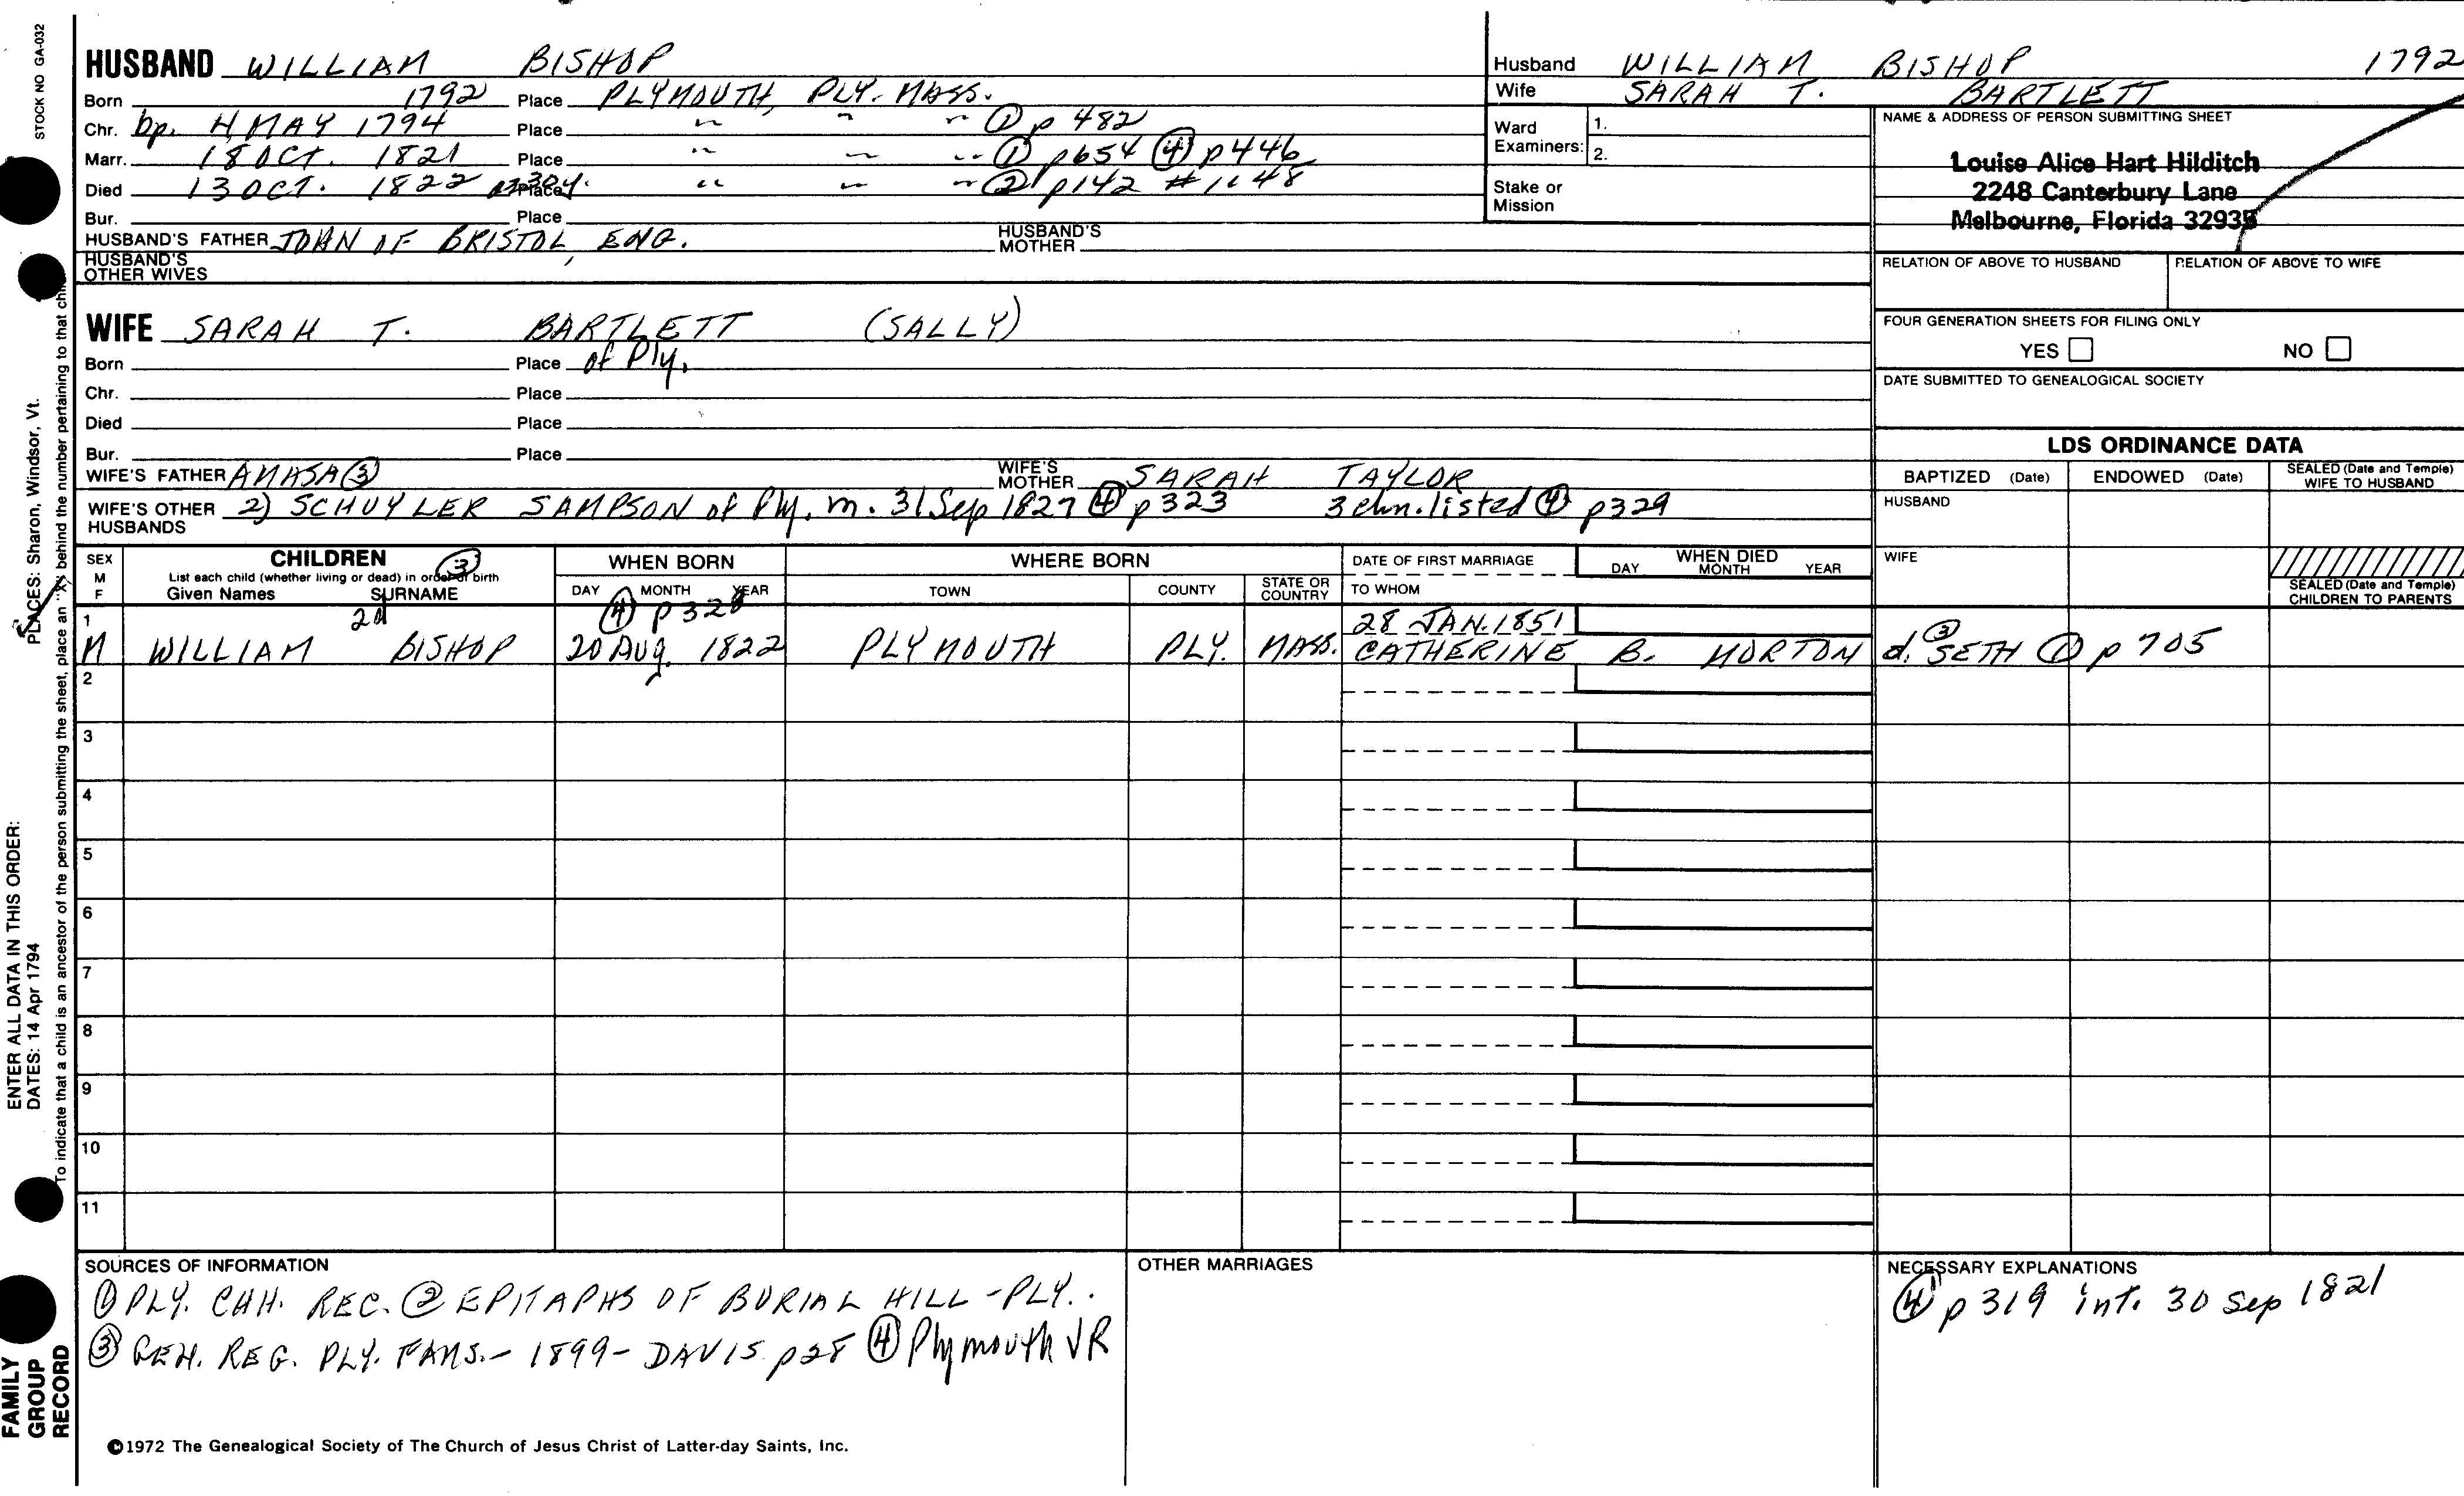 STOCK NO GA-032
HUSBAND WILLIAM BISHOP
Born 1792 Place PLYMOUTH, PLY. MASS.
Chr. bp. 4 MAY 1794 Place " " " ① p 482
Marr. 18 OCT. 1821 Place " " " ① p654 ④ p446
Died 13 OCT. 1822 Place " " " ② p142 #1148
Bur. Place
HUSBAND'S FATHER JOHN OF BRISTOL, ENG. HUSBAND'S MOTHER
HUSBAND'S OTHER WIVES
WIFE SARAH T. BARTLETT (SALLY)
Born Place of Ply.
Chr. Place
Died Place
Bur. Place
WIFE'S FATHER AMASA ③ WIFE'S MOTHER SARAH TAYLOR
WIFE'S OTHER HUSBANDS 2) SCHUYLER SAMPSON of Ply. m. 31 Sep 1827 ④ p323 3 chn. listed ④ p329
Husband WILLIAM BISHOP 1792
Wife SARAH T. BARTLETT
Ward Examiners: 1.
2.
Stake or Mission
NAME & ADDRESS OF PERSON SUBMITTING SHEET
Louise Alice Hart Hilditch
2248 Canterbury Lane
Melbourne, Florida 32935
RELATION OF ABOVE TO HUSBAND RELATION OF ABOVE TO WIFE
FOUR GENERATION SHEETS FOR FILING ONLY
YES NO
DATE SUBMITTED TO GENEALOGICAL SOCIETY
LDS ORDINANCE DATA
BAPTIZED (Date) ENDOWED (Date) SEALED (Date and Temple) WIFE TO HUSBAND
HUSBAND
WIFE
SEALED (Date and Temple) CHILDREN TO PARENTS
SEX M F
CHILDREN ③
List each child (whether living or dead) in order of birth
Given Names SURNAME
WHEN BORN
DAY MONTH YEAR
WHERE BORN
TOWN COUNTY STATE OR COUNTRY
DATE OF FIRST MARRIAGE
TO WHOM
WHEN DIED
DAY MONTH YEAR
1 2d ④ 28 JAN. 1851
M WILLIAM BISHOP 20 Aug. 1822 PLYMOUTH PLY. MASS. CATHERINE B. MORTON d. ③ SETH ① p 705
2
3
4
5
6
7
8
9
10
11
SOURCES OF INFORMATION
① PLY. CHH. REC. ② EPITAPHS OF BURIAL HILL - PLY.
③ GEN. REG. PLY. FAMS. - 1899 - DAVIS p28 ④ Plymouth VR
OTHER MARRIAGES
NECESSARY EXPLANATIONS
④ p 319 int. 30 Sep 1821
©1972 The Genealogical Society of The Church of Jesus Christ of Latter-day Saints, Inc.
ENTER ALL DATA IN THIS ORDER:
DATES: 14 Apr 1794 PLACES: Sharon, Windsor, Vt.
To indicate that a child is an ancestor of the person submitting the sheet, place an "X" behind the number pertaining to that
FAMILY GROUP RECORD